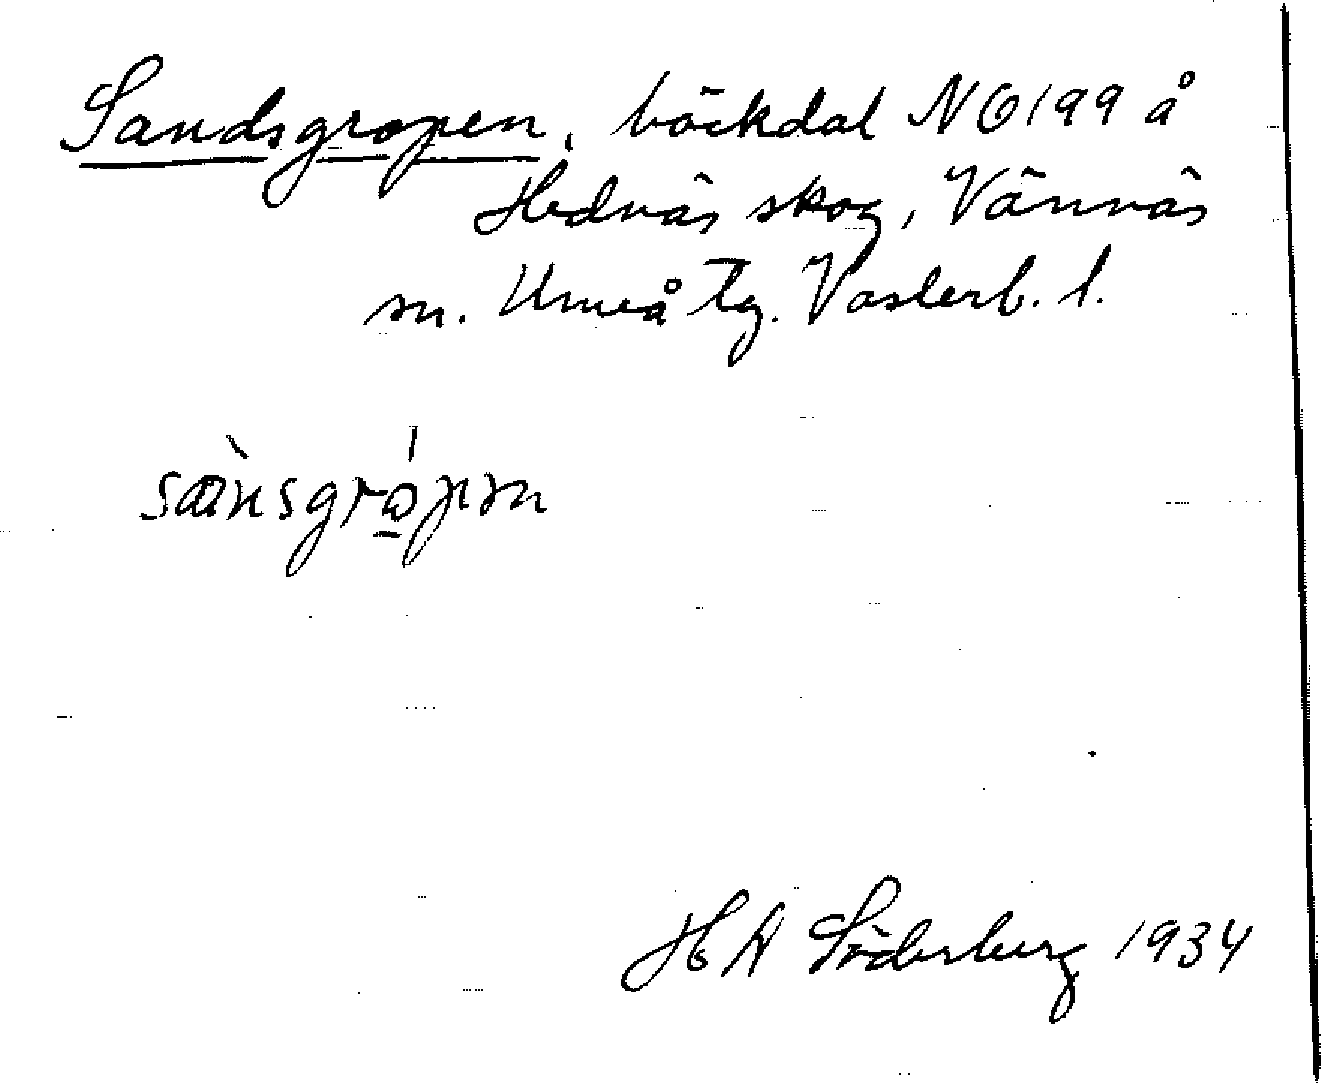 Sandsgropen, bäckdal NO199 å
Hednäs skog, Vännäs
sn. Umeå tg. Västerb. l.
sànsgrópm
HA Söderberg 1934